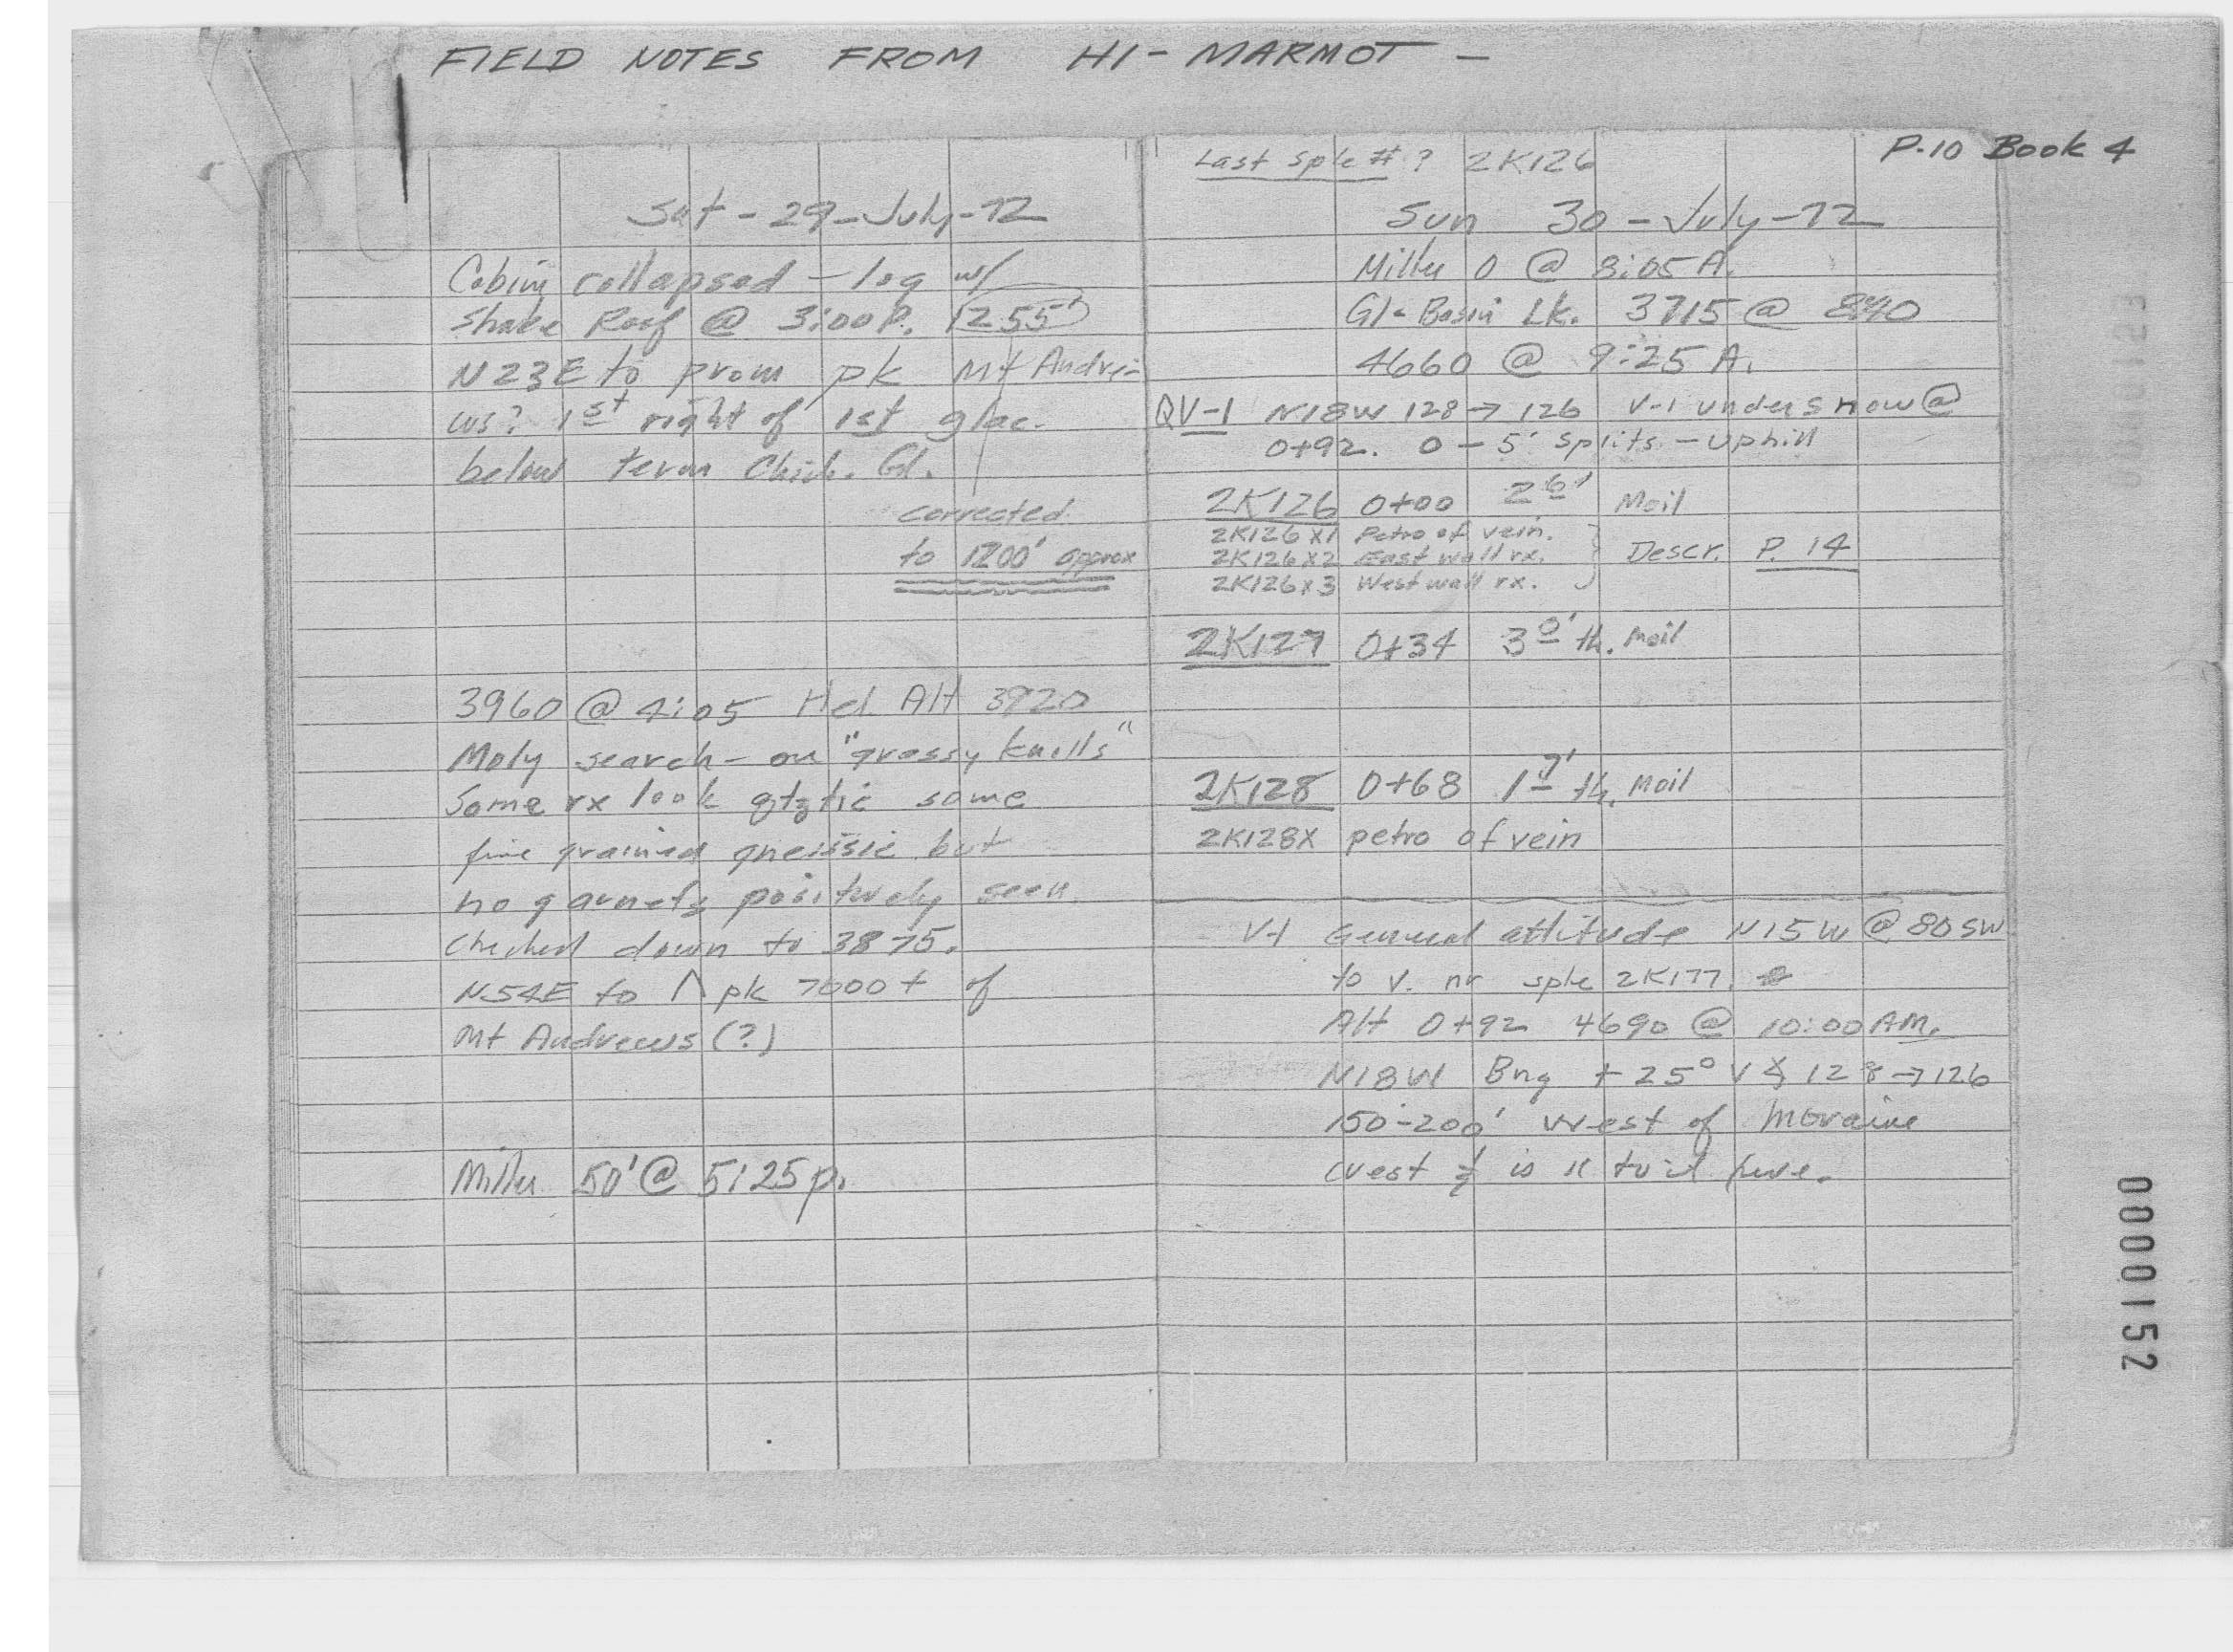 FIELD NOTES FROM HI-MARMOT -
P.10 Book 4
Sat - 29 - July - 72
Cabin collapsed - log w/
shake Roof @ 3:00 P. 1255'
N23E to prom pk Mt Andre-
ws? 1st right of 1st glac.
below term Chick. Gl.
corrected
to 1200' approx
3960 @ 4:05 Hel Alt 3920
Moly search - on "grassy knolls"
Some rx look qtztic some
fine grained gneissic but
no garnets positively seen
Checked down to 3875.
N54E to Λ pk 7000+ of
Mt Andrews (?)
Miller 50' @ 5:25 p.
Last sple #? 2K126
Sun 30 - July - 72
Miller 0 @ 8:05 A.
Gl-Basin Lk. 3715 @ 840
4660 @ 9:25 A.
QV-1 N18W 128 → 126 V-1 under snow @
0+92. 0 - 5' splits - uphill
2K126 0+00 2 6' Moil
2K126X1 Petro of vein.
2K126X2 East wall rx. } Descr. P. 14
2K126X3 West wall rx.
2K127 0+34 3 0' th. Moil
2K128 0+68 1 7' th. Moil
2K128X petro of vein
V-1 General attitude N15W @ 80SW
to v. nr sple 2K177.
Alt 0+92 4690 @ 10:00 AM.
N18W Bng + 25° V ∡ 128 → 126
150-200' West of Moraine
crest & is 11 to it here.
0000152